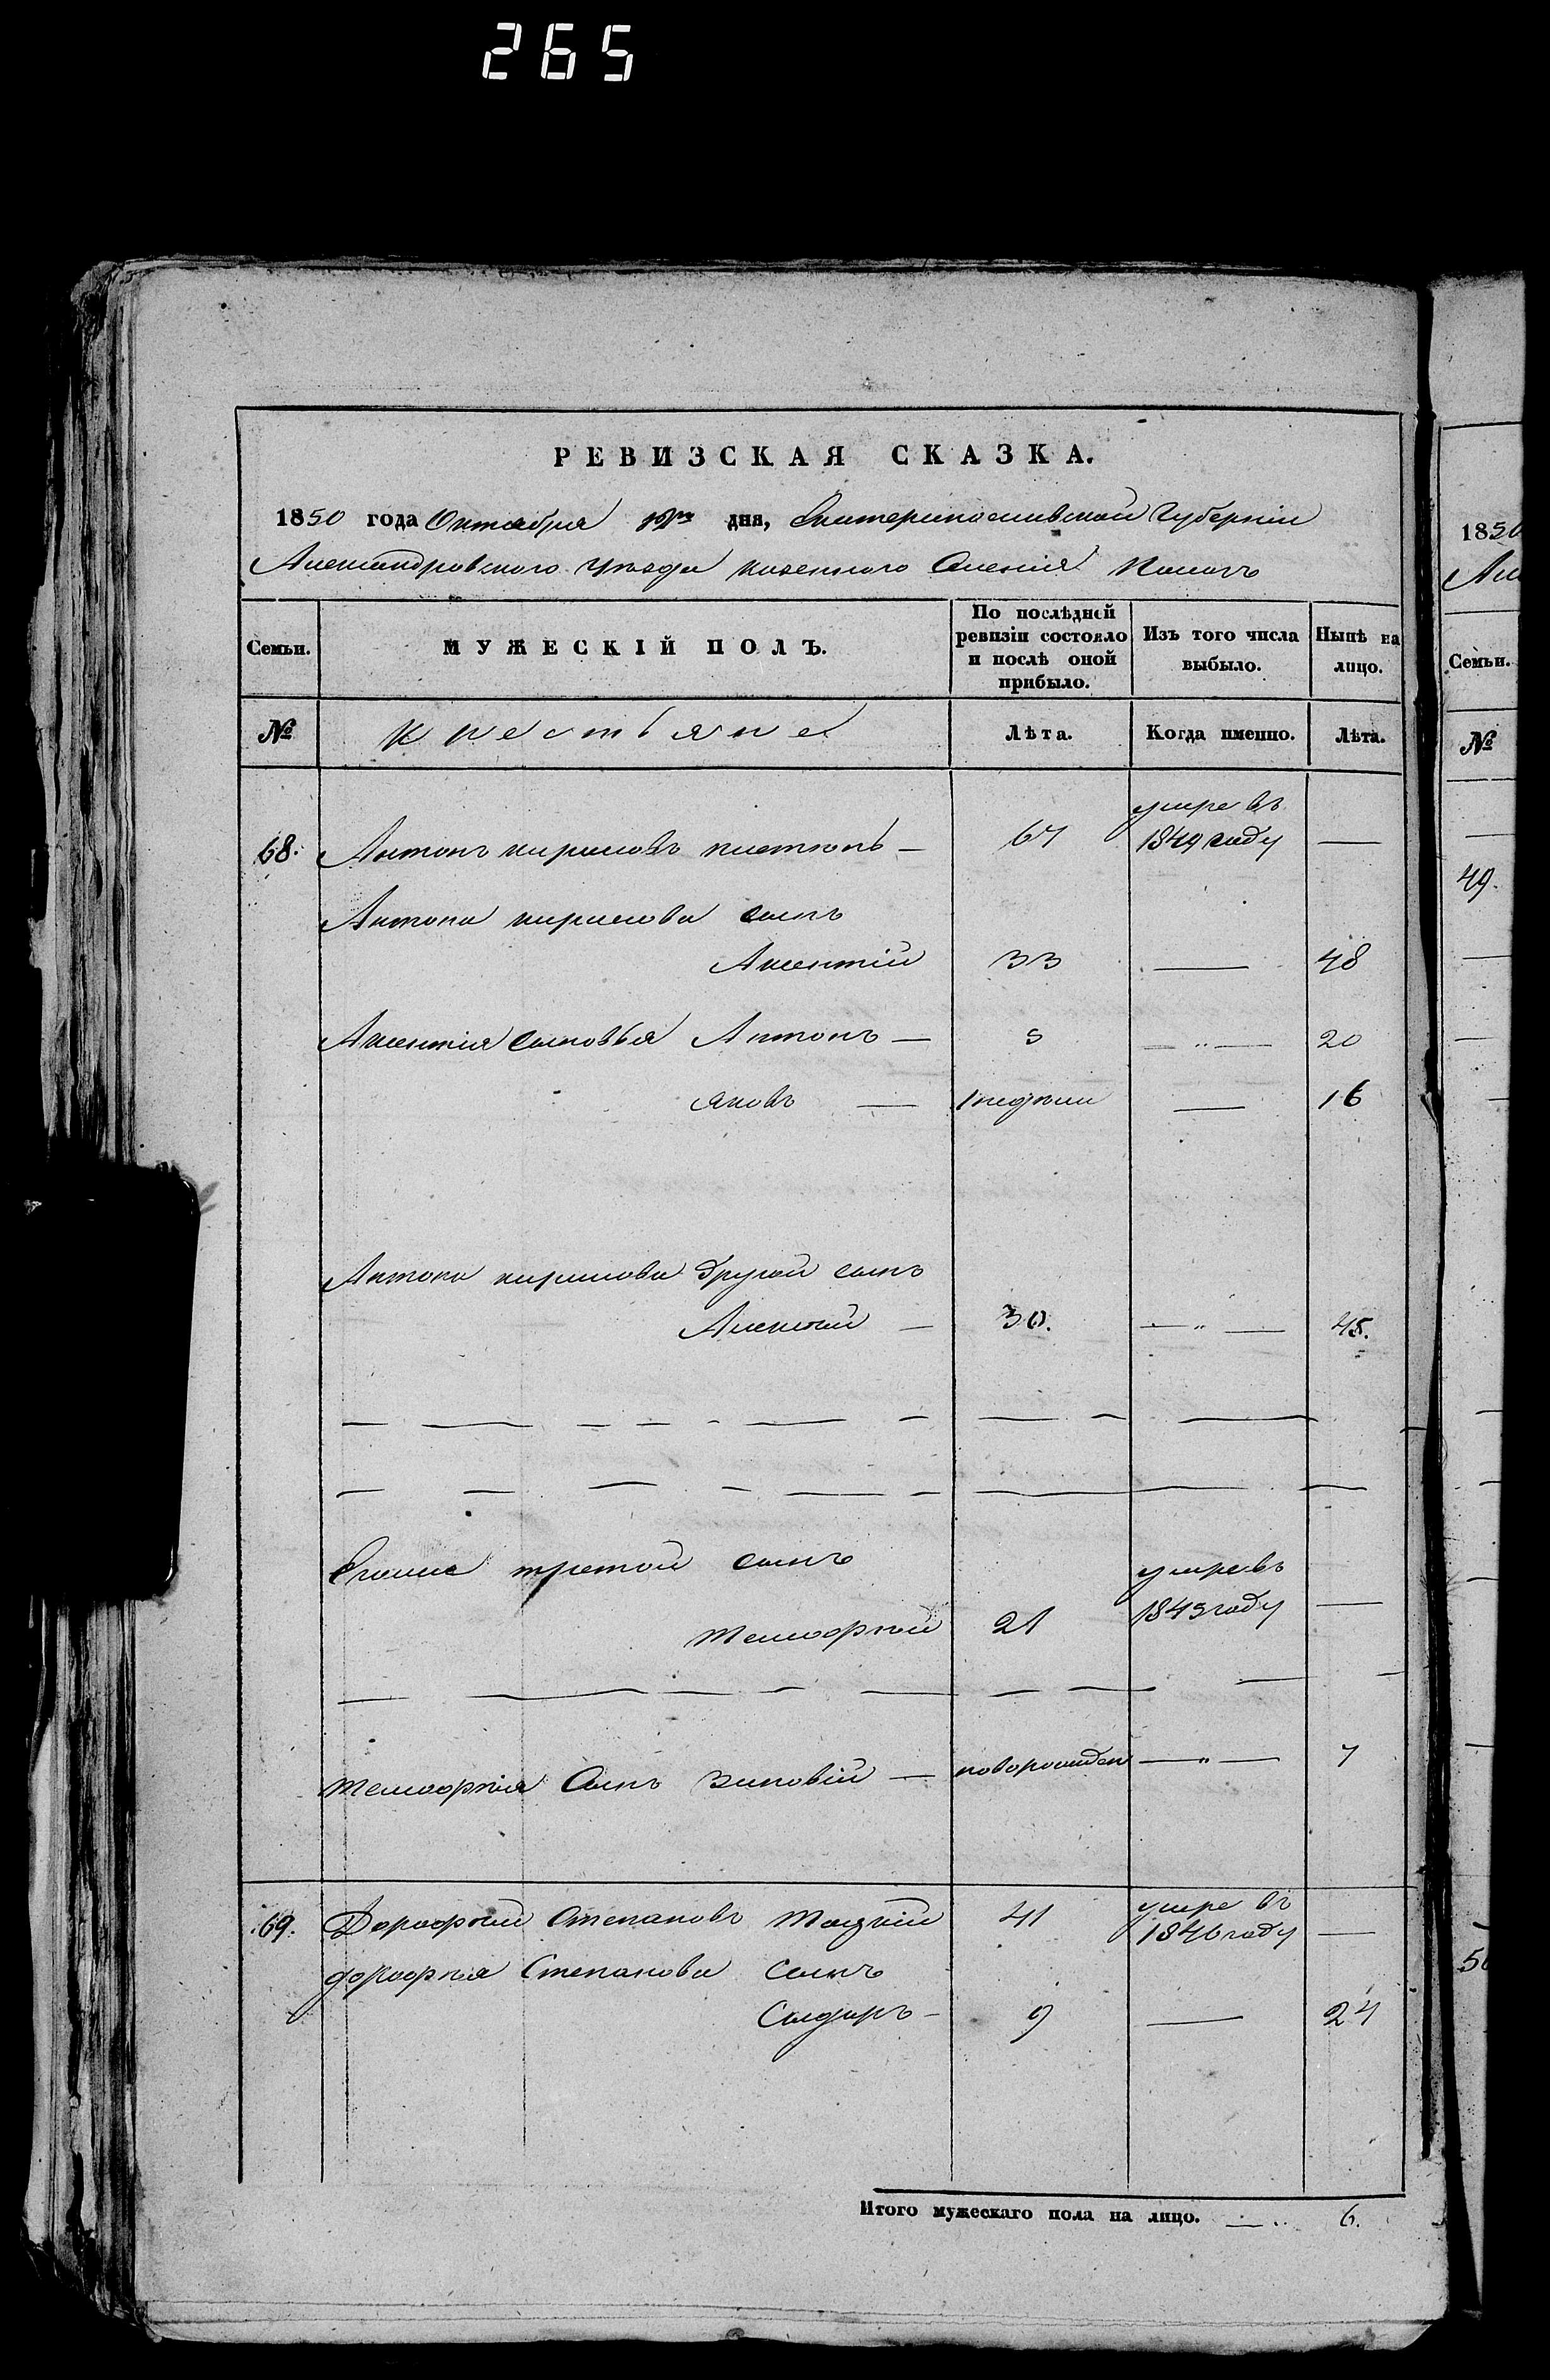 265
РЕВИЗСКАЯ СКАЗКА.
1850 года Октября дня, Екатеринославской Губернiи
Александровского уѣзда казенного Селенiя Пологъ
Семьи.
МУЖЕСКІЙ ПОЛЪ.
По послѣдней ревизіи состояло и послѣ оной прибыло.
Изъ того числа выбыло.
Нынѣ на лицо.
№
Крестьяне
Лѣта.
Когда именно.
Лѣта.
68. Антонъ кириловъ — 67 умре въ 1849 году —
Антона кирилова сынъ
Аксентiй 33 — 48
Аксентiя сыновья Антонъ — 5 — " — 20
яковъ — 1 недѣли — 16
Антона кирилова другой сынъ
Алексѣй — 30. — " — 45.
Его же третой сынъ
тимофѣй 21 умре въ 1843 году —
тимофѣя Сынъ Зиновiй — новорожден — " — 7
69. Дорофѣй Степановъ 41 умре въ 1846 году —
дорофѣя Степанова Сынъ
Сидоръ — 9 — 24
Итого мужескаго пола на лицо. — .. 6.
1850
Семьи.
№
49.